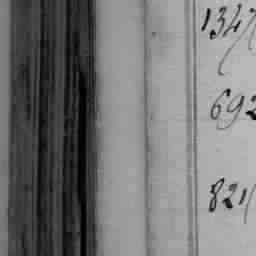 1347
692
821